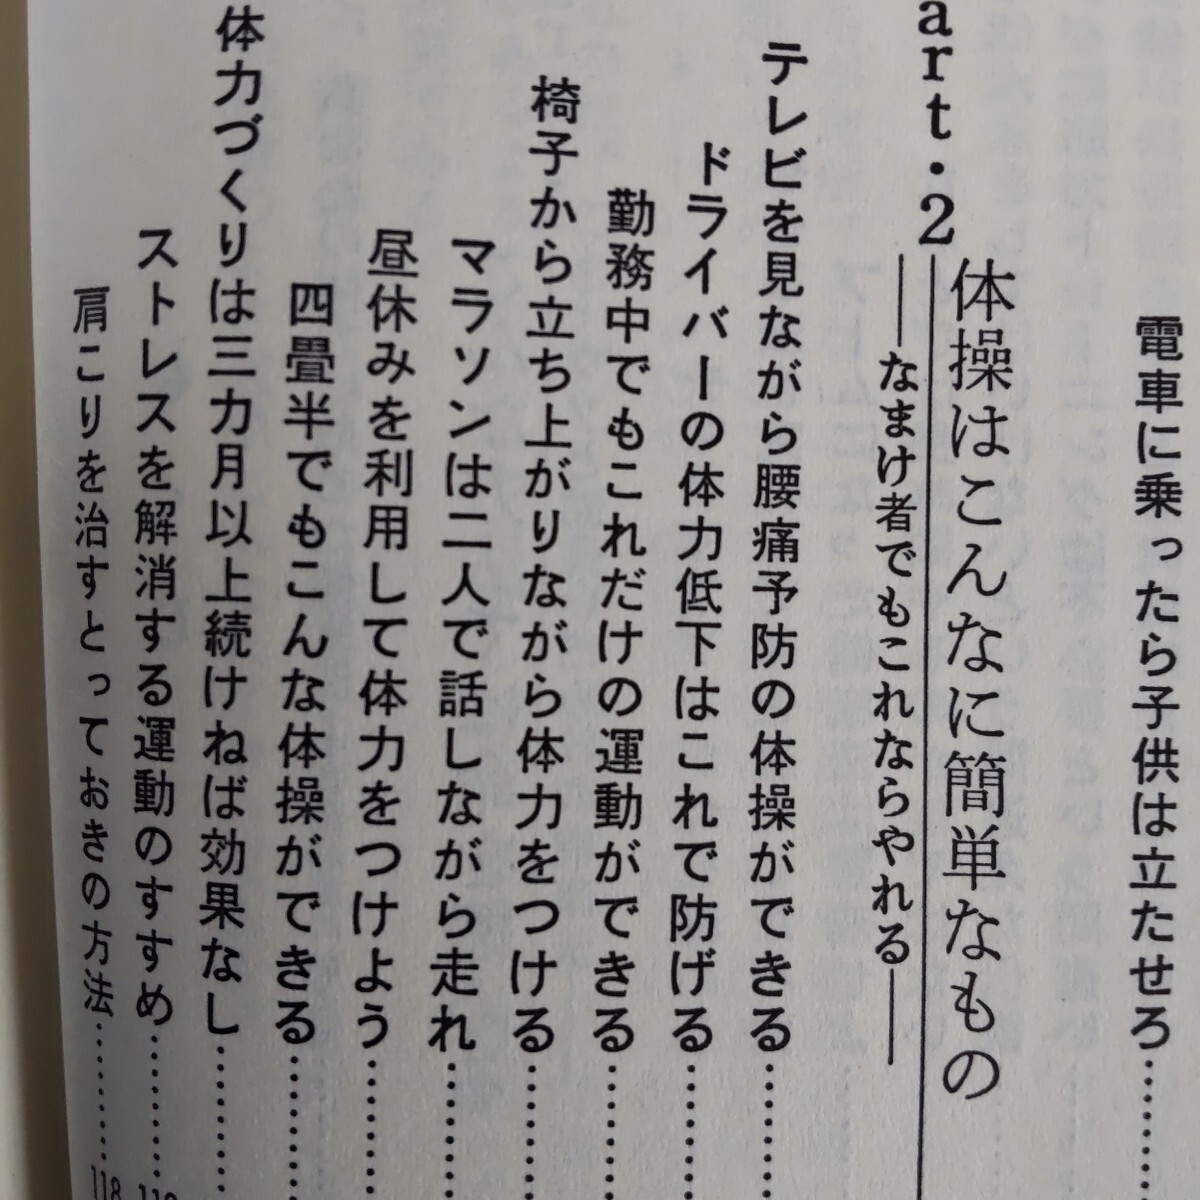 電車に乗ったら子供は立たせろ………
art・2 体操はこんなに簡単なもの
――なまけ者でもこれならやれる――
テレビを見ながら腰痛予防の体操ができる………
ドライバーの体力低下はこれで防げる………
勤務中でもこれだけの運動ができる………
椅子から立ち上がりながら体力をつける………
マラソンは二人で話しながら走れ………
昼休みを利用して体力をつけよう………
四畳半でもこんな体操ができる………
体力づくりは三カ月以上続けねば効果なし………
ストレスを解消する運動のすすめ………
肩こりを治すとっておきの方法………118